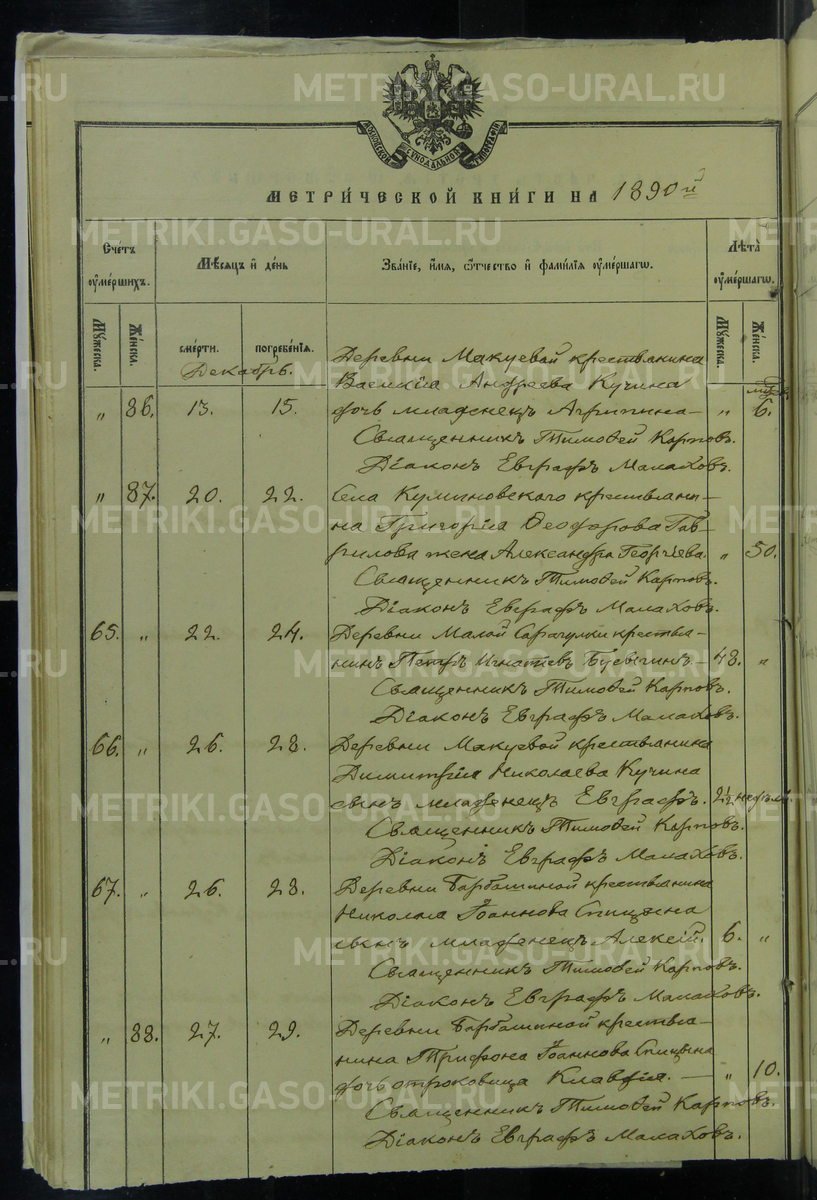 METRIKI.GASO-URAL.RU
МОСКОВСКОЙ СѴНОДАЛЬНОЙ ТИПОГРАФІИ
МЕТРИ́ЧЕСКОЙ КНИ́ГИ НА 1890й
Сче́тъ ѹме́ршихъ.
Мѣ́сяцъ и де́нь
Зва́нїе, и́мя, ѻ҆́тчество и фами́лїя ѹме́ршагѡ.
Лѣта̀ ѹме́ршагѡ.
Мꙋ́жеска. Же́нска. сме́рти. погребе́нїя. Мꙋ́жеска. Же́нска.
Декабрь.
Деревни Макуевой крестьянина
Василія Андреева Кучина
„ 86. 13. 15. дочь младенецъ Агрипина — „ 6.
Священникъ Тимоѳей Карповъ.
Діаконъ Евграфъ Малаховъ.
„ 87. 20. 22. Села Куминовскаго крестьяни-
на Григорія Ѳеодорова Гав-
рилова жена Александра Георгіева. „ 50.
Священникъ Тимоѳей Карповъ.
Діаконъ Евграфъ Малаховъ.
65. „ 22. 24. Деревни Малой Сарагулки крестья-
нинъ Петръ Игнатіевъ — 48. „
Священникъ Тимоѳей Карповъ.
Діаконъ Евграфъ Малаховъ.
66. „ 26. 28. Деревни Макуевой крестьянина
Димитрія Николаева Кучина
сынъ младенецъ Евграфъ. 2½ недѣли.
Священникъ Тимоѳей Карповъ.
Діаконъ Евграфъ Малаховъ.
67. „ 26. 28. Деревни Барбашиной крестьянина
Николая Іоаннова Спицына
сынъ младенецъ Алексій. 6. „
Священникъ Тимоѳей Карповъ.
Діаконъ Евграфъ Малаховъ.
„ 88. 27. 29. Деревни Барбашиной крестья-
нина Трифона Іоаннова Спицына
дочь отроковица Клавдія. — „ 10.
Священникъ Тимоѳей Карповъ.
Діаконъ Евграфъ Малаховъ.